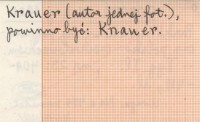 Krauer (autor jednej fot.),
powinno być: Knauer.